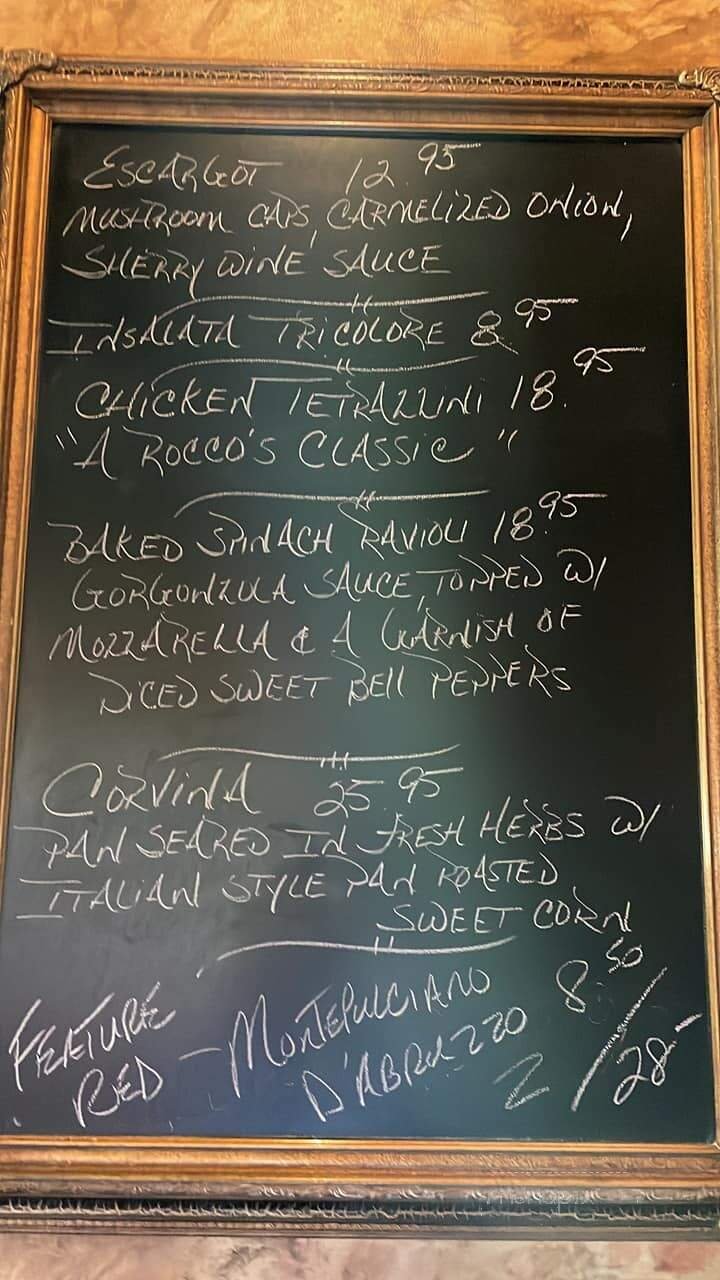 ESCARGOT 12.95
MUSHROOM CAPS, CARMELIZED ONION,
SHERRY WINE SAUCE
INSALATA TRICOLORE 8.95
CHICKEN TETRAZZINI 18.95
"A ROCCO'S CLASSIC"
BAKED SPINACH RAVIOLI 18.95
GORGONZOLA SAUCE, TOPPED W/
MOZZARELLA & A GARNISH OF
DICED SWEET BELL PEPPERS
CORVINA 25.95
PAN SEARED IN FRESH HERBS W/
ITALIAN STYLE PAN ROASTED
SWEET CORN
FEATURE RED - MONTEPULCIANO D'ABRUZZO 8.50/28-